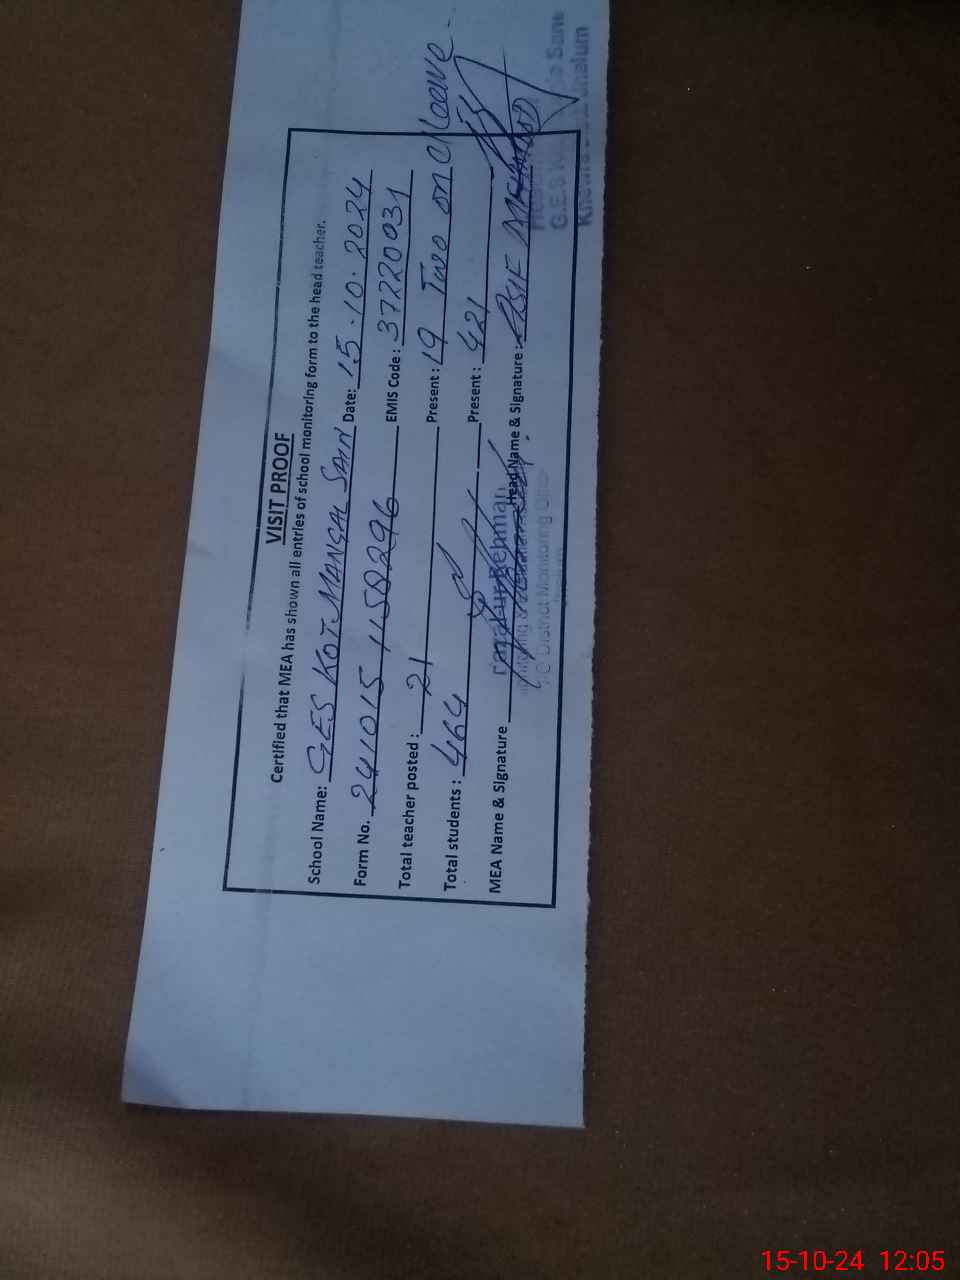 VISIT PROOF
Certified that MEA has shown all entries of school monitoring form to the head teacher.
School Name: GES KOT MANGAL SAIN Date: 15.10.2024
Form No. 241015 1158296 EMIS Code: 37220031
Total teacher posted: 21 Present: 19 Two on Leave
Total students: 464 Present: 421
MEA Name & Signature Head Name & Signature: ASIF MEHMOOD
District Monitoring
G.E.S
15-10-24 12:05